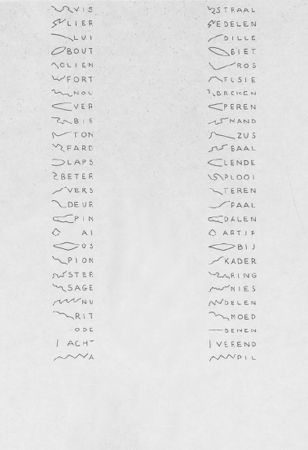 VIS
LIER
LUI
BOUT
OLIEN
FORT
NOL
VER
BIE
TON
FARD
LAPS
BETER
VERS
DEUR
PIN
AI
OS
PION
STER
SAGE
NU
RIT
ODE
ACHT
A
STRAAL
EDELEN
DILLE
BIET
ROS
ELSIE
PEREN
HAND
ZUS
EAAL
LENDE
PLOOI
TEREN
DALEN
BIJ
KADER
RING
NIES
DELEN
MOED
DENEN
VEREND
PIL